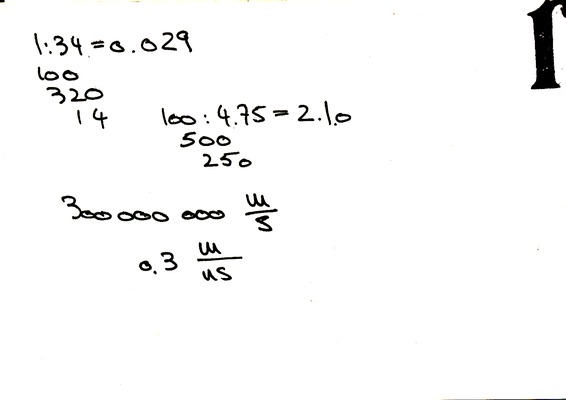 1:34 = 0.029
100
320
14
100 : 4.75 = 2.10
500
250
300 000 000 m/s
0.3 m/ns
r